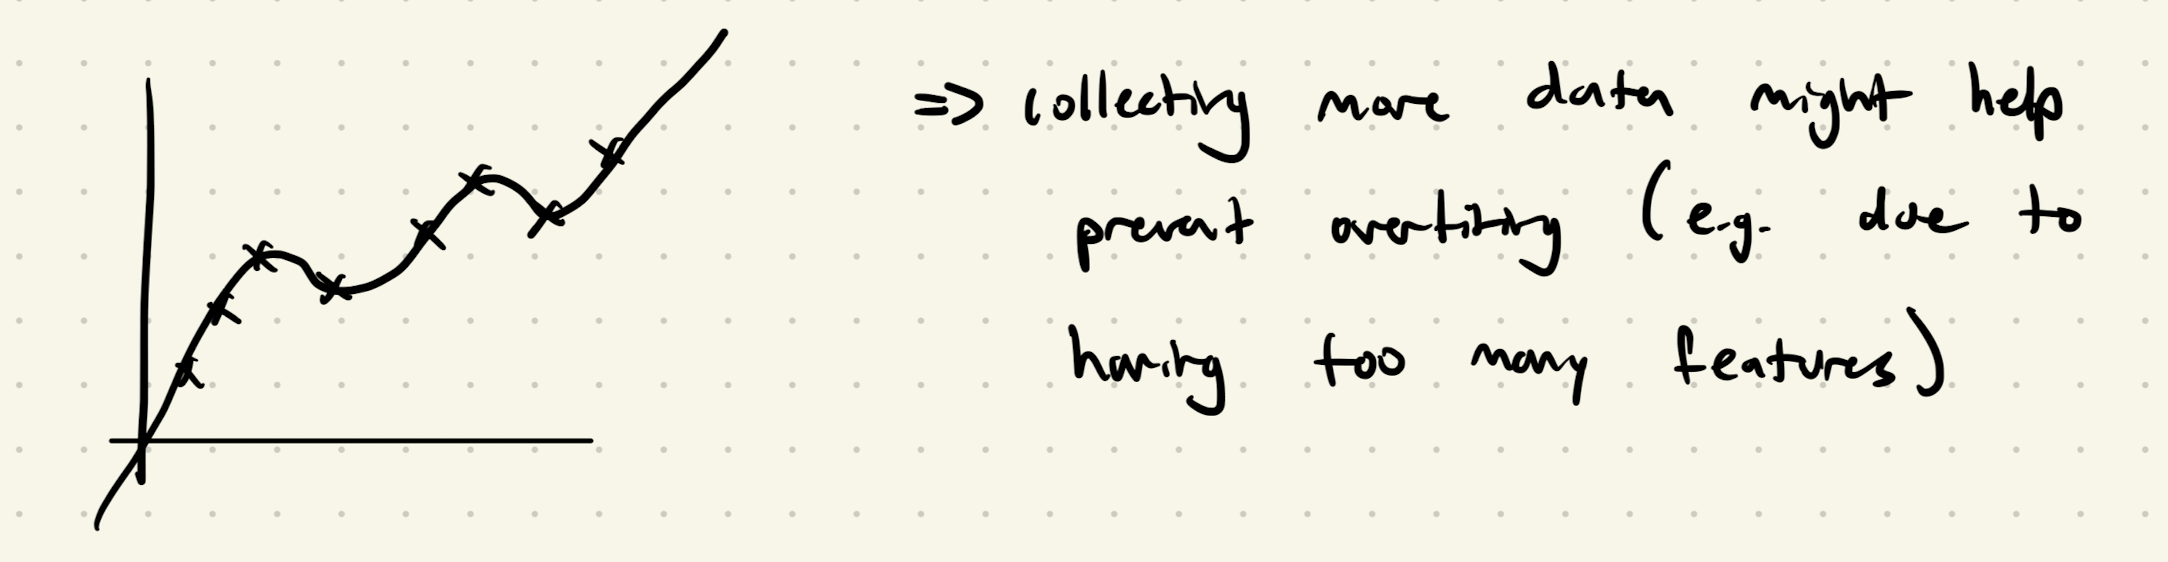 => collecting more data might help
prevent overfitting (e.g. due to
having too many features)